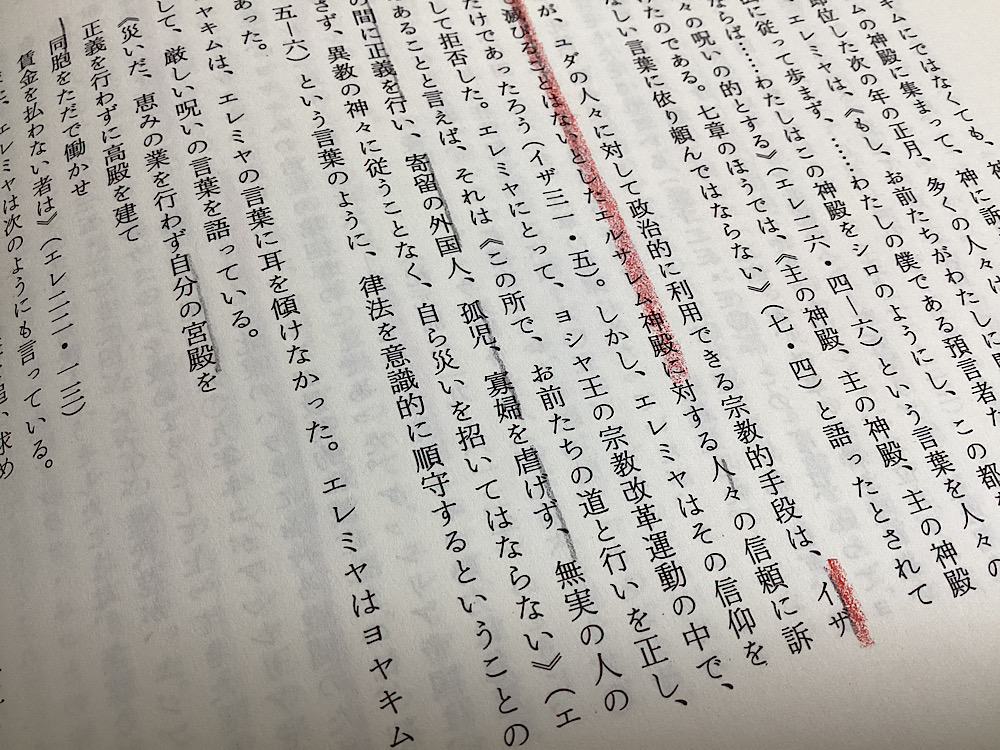 キムにではなくても、神
ムの神殿に集まって、神に訴
即位した次の年の正月、多くの人々
、エレミヤは、《もし、お前たちがわたしに
に従って歩まず、……わたしの僕である預言者た
ならば……わたしはこの神殿をシロのようにし、この都を
々の呪いの的とする》(エレ二六・四―六)という言葉を人々の
けたのである。七章のほうでは、《主の神殿、主の神殿、主の神殿
ない言葉に依り頼んではならない》(七・四)と語ったとされて
が、ユダの人々に対して政治的に利用できる宗教的手段は、イザ
滅びることはないとしたエルサレム神殿に対する人々の信頼に訴
だけであったろう(イザ三一・五)。しかし、エレミヤはその信仰を
して拒否した。エレミヤにとって、ヨシヤ王の宗教改革運動の中で、
あることと言えば、それは《この所で、お前たちの道と行いを正し、
の間に正義を行い、寄留の外国人、孤児、寡婦を虐げず、無実の人の
さず、異教の神々に従うことなく、自ら災いを招いてはならない》(エ
五―六)という言葉のように、律法を意識的に順守するということの
あった。
ヤキムは、エレミヤの言葉に耳を傾けなかった。エレミヤはヨヤキム
して、厳しい呪いの言葉を語っている。
《災いだ、恵みの業を行わず自分の宮殿を
正義を行わずに高殿を建て
同胞をただで働かせ
賃金を払わない者は》(エレ二二・一三)
エレミヤは次のようにも言っている。
追い求め